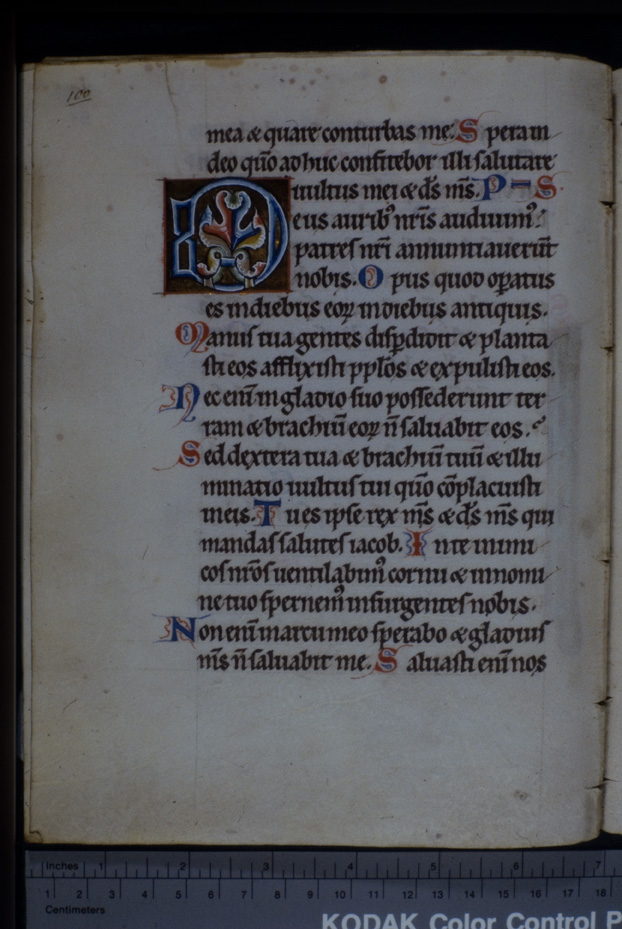 100
mea & quare conturbas me. Speraui
deo quō adhuc confitebor illi salutare
uultus mei & ds̄ ms̄. P S
Deus auribꝰ nr̄is audiuimꝰ
patres nr̄i annuntiauerūt
nobis. Opus quod oꝑatus
es indiebus eoꝝ indiebus antiquis.
Manus tua gentes disꝑdidit & planta
sti eos afflixisti ppl̄os & expulisti eos.
Nec enī ingladio suo possederunt ter
ram & brachiū eoꝝ n̄ saluabit eos.
Sed dextera tua & brachiū tuū & illu
minatio uultus tui qūo cōplacuisti
ineis. Tu es ipse rex ms̄ & ds̄ ms̄ qui
mandas salutes iacob. Inte inimi
cos nr̄os uentilabimꝰ cornu & innomi
ne tuo spernemꝰ insurgentes nobis.
Non enī inarcu meo sperabo & gladius
ms̄ n̄ saluabit me. Saluasti enī nos
inches 1 2 3 4 5 6 7
1 2 3 4 5 6 7 8 9 10 11 12 13 14 15 16 17 18
Centimeters
KODAK Color Control P